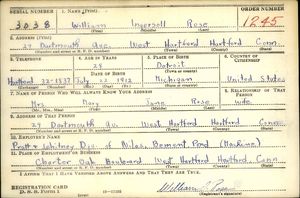 SERIAL NUMBER 1. NAME (Print) ORDER NUMBER
3038 William Ingersoll Rose 1245
(First) (Middle) (Last)
2. ADDRESS (Print)
27 Dartmouth Ave. West Hartford Hartford Conn.
3. TELEPHONE 4. AGE IN YEARS 5. PLACE OF BIRTH 6. COUNTRY OF CITIZENSHIP
28 Detroit
DATE OF BIRTH
Hartford 32-1537 July 1912 Michigan United States
7. NAME OF PERSON WHO WILL ALWAYS KNOW YOUR ADDRESS 8. RELATIONSHIP OF THAT PERSON
Mrs. Mary Jane Rose wife
9. ADDRESS OF THAT PERSON
27 Dartmouth Ave West Hartford Hartford Conn.
10. EMPLOYER'S NAME
Pratt & Whitney Div. of Niles Bement Pond (Machine)
11. PLACE OF EMPLOYMENT OR BUSINESS
Charter Oak Boulevard West Hartford Hartford Conn
I AFFIRM THAT I HAVE VERIFIED ABOVE ANSWERS AND THAT THEY ARE TRUE.
REGISTRATION CARD
D. S. S. Form 1